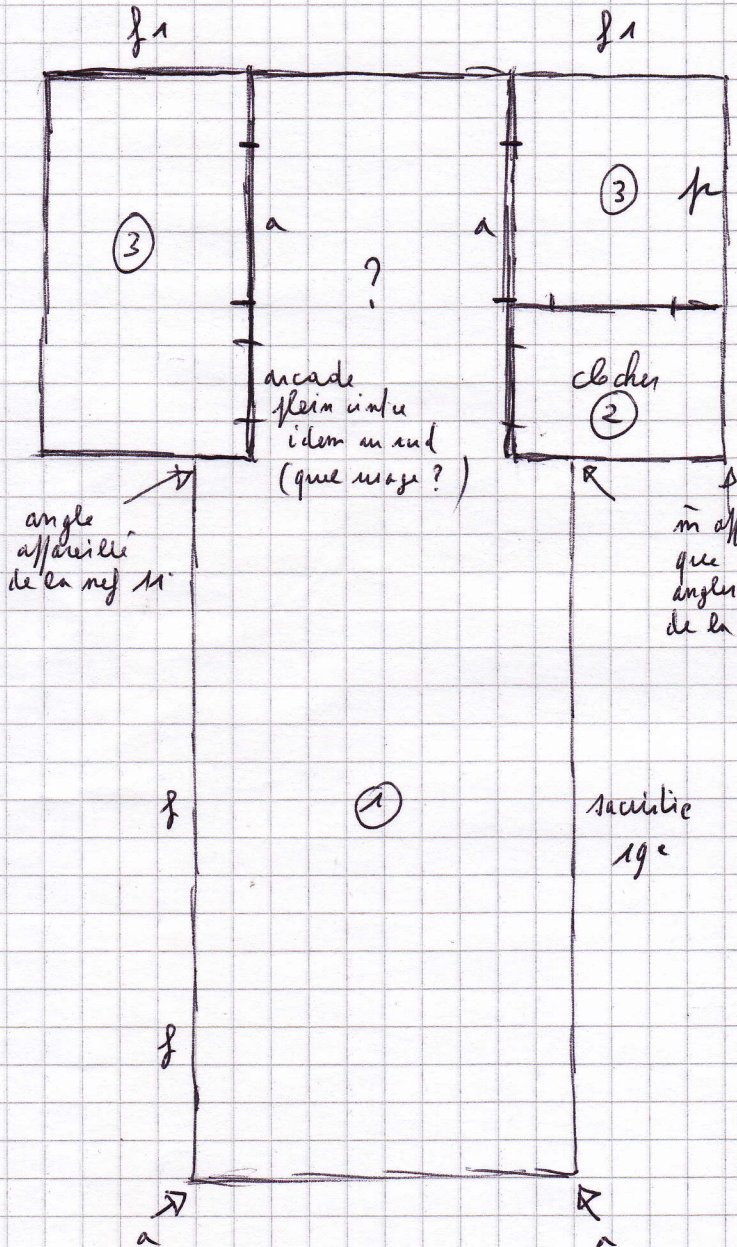 f1
f1
③
③
p
a
a
?
arcade
plein cintre
idem au sud
(quel usage ?)
clocher
②
angle
appareillé
de la nef 11
m
que
angles
de la
f
①
sacristie
19e
f
a
a